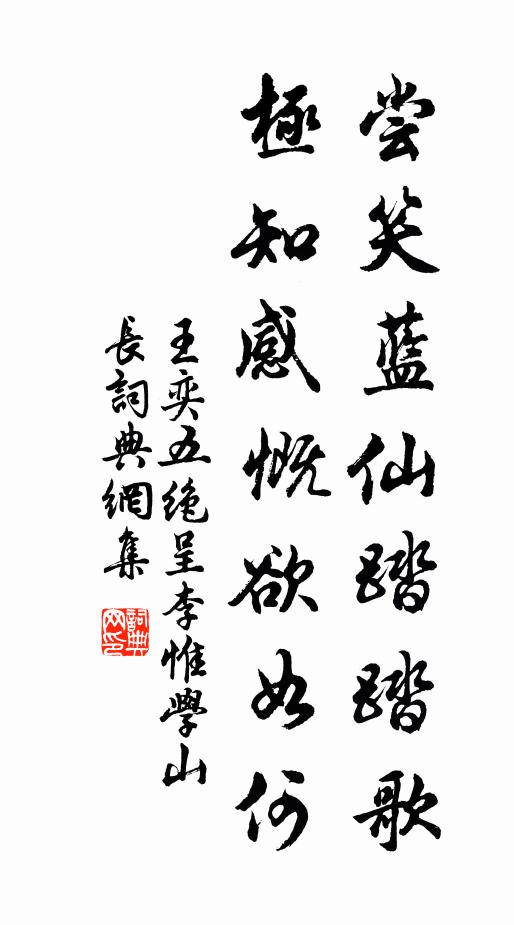 尝笑蓝仙踏踏歌
極知感慨欲如何
王奕五绝呈李惟學山
長詞典網集
詞典
网印